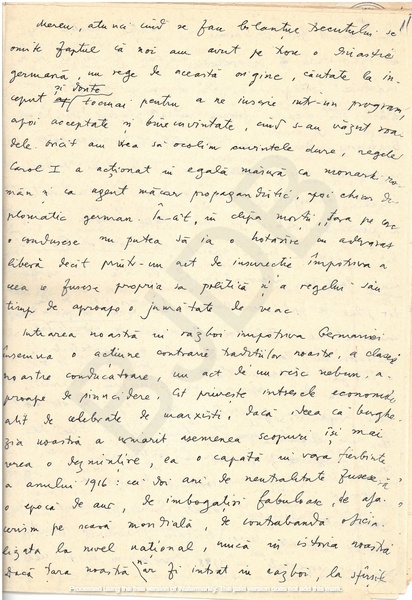 11
mereu, atunci cînd se fac bilanturi trecutului se
omite faptul că noi am avut pe tron o dinastie
germană, un rege de această origine, căutate la în-
și dorite
ceput tocmai pentru a ne înscrie într-un program,
apoi acceptate și binecuvîntate, cînd s-au văzut roa-
dele. Oricît am vrea să ocolim cuvintele dure, regele
Carol I a acționat în egală măsură ca monarh ro-
mân și ca agent măcar propagandistic, apoi chiar di-
plomatic german. Încît, în clipa morții, țara pe care
o condusese nu putea să ia o hotărîre cu adevărat
liberă decît printr-un act de insurecție împotriva a
ceea ce fusese propria sa politică și a regelui său
timp de aproape o jumătate de veac.
Intrarea noastră în război împotriva Germaniei
însemna o acțiune contrarie tradițiilor noastre, a clasei
noastre conducătoare, un act de un risc nebun, a-
proape de sinucidere. Cît privește interesele economice,
atît de celebrate de marxiști, dacă ideea că burghe-
zia noastră a urmărit asemenea scopuri își mai
vrea o dezmințire, ea o capătă în vara fierbinte
a anului 1916: cei doi ani de neutralitate fuseseră
o epocă de aur, de îmbogățiri fabuloase, de afa-
cerism pe scară mondială, de contrabandă oficia-
lizată la nivel național, unică în istoria noastră.
Dacă țara noastră n-ar fi intrat în război, la sfîrșit